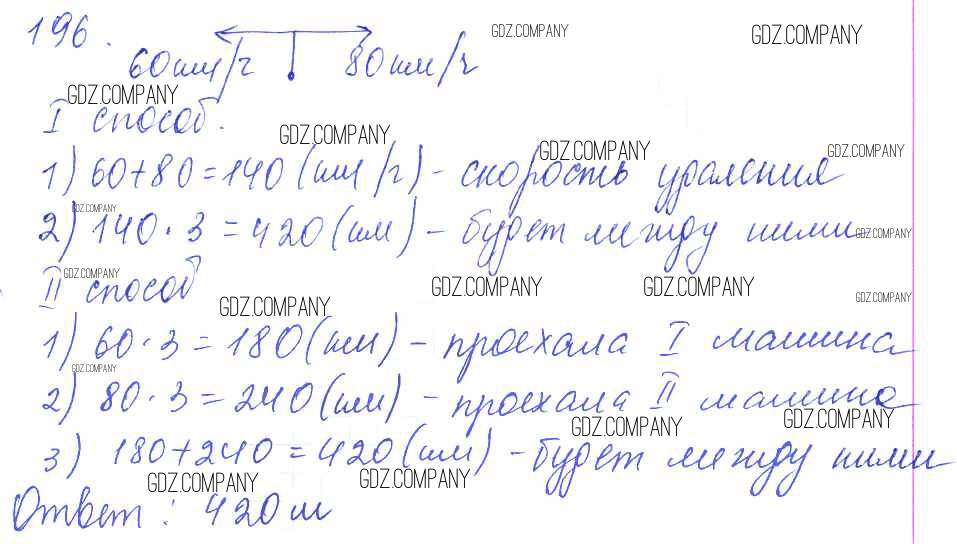 196.
GDZ.COMPANY GDZ.COMPANY
60 км/ч 80 км/ч
GDZ.COMPANY
I способ.
GDZ.COMPANY GDZ.COMPANY GDZ.COMPANY
1) 60+80=140 (км/ч) - скорость удаления
GDZ.COMPANY
2) 140·3=420 (км) - будет между ними.
GDZ.COMPANY
GDZ.COMPANY
II способ
GDZ.COMPANY GDZ.COMPANY GDZ.COMPANY GDZ.COMPANY
1) 60·3=180 (км) - проехала I машина
GDZ.COMPANY
2) 80·3=240 (км) - проехала II машина
GDZ.COMPANY GDZ.COMPANY
3) 180+240=420 (км) - будет между ними
GDZ.COMPANY GDZ.COMPANY
Ответ: 420 м